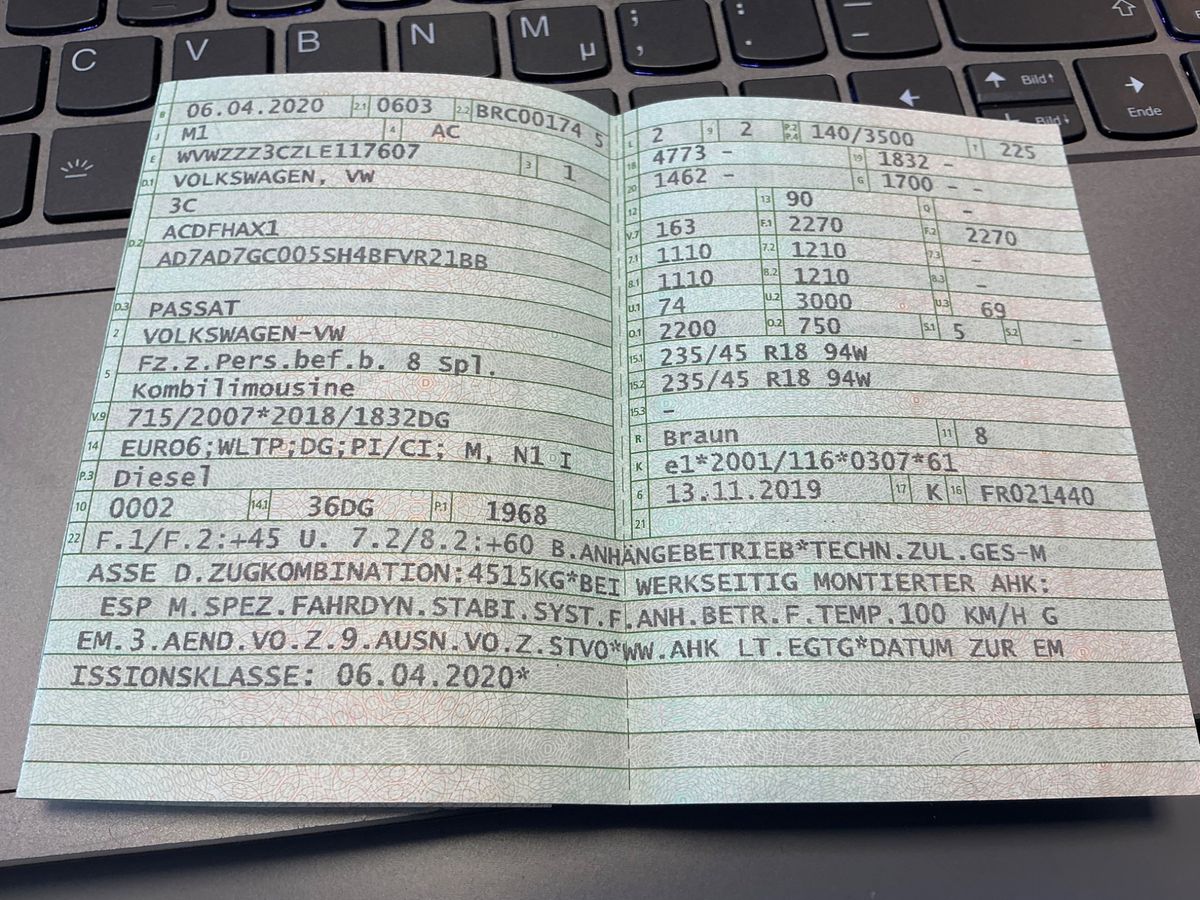 C V B N M µ ; , : . – _ ⇧
← ↑ Bild↑ → Ende
Bild↓
B 06.04.2020 2.1 0603 2.2 BRC00174 5
J M1 4 AC
E WVWZZZ3CZLE117607 3 1
D.1 VOLKSWAGEN, VW
3C
D.2 ACDFHAX1
AD7AD7GC005SH4BFVR21BB
D.3 PASSAT
2 VOLKSWAGEN-VW
5 Fz.z.Pers.bef.b. 8 Spl.
Kombilimousine
V.9 715/2007*2018/1832DG
14 EURO6;WLTP;DG;PI/CI; M, N1 I
P.3 Diesel
10 0002 14.1 36DG P.1 1968
L 2 9 2 P.2 P.4 140/3500 T 225
18 4773 – 19 1832 –
20 1462 – G 1700 – –
12 13 90 Q –
V.7 163 F.1 2270 F.2 2270
7.1 1110 7.2 1210 7.3 –
8.1 1110 8.2 1210 8.3 –
U.1 74 U.2 3000 U.3 69
O.1 2200 O.2 750 S.1 5 S.2 –
15.1 235/45 R18 94W
15.2 235/45 R18 94W
15.3 –
R Braun 11 8
K e1*2001/116*0307*61
6 13.11.2019 17 K 16 FR021440
21
22 F.1/F.2:+45 U. 7.2/8.2:+60 B.ANHÄNGEBETRIEB*TECHN.ZUL.GES-M
ASSE D.ZUGKOMBINATION:4515KG*BEI WERKSEITIG MONTIERTER AHK:
ESP M.SPEZ.FAHRDYN.STABI.SYST.F.ANH.BETR.F.TEMP.100 KM/H G
EM.3.AEND.VO.Z.9.AUSN.VO.Z.STVO*WW.AHK LT.EGTG*DATUM ZUR EM
ISSIONSKLASSE: 06.04.2020*